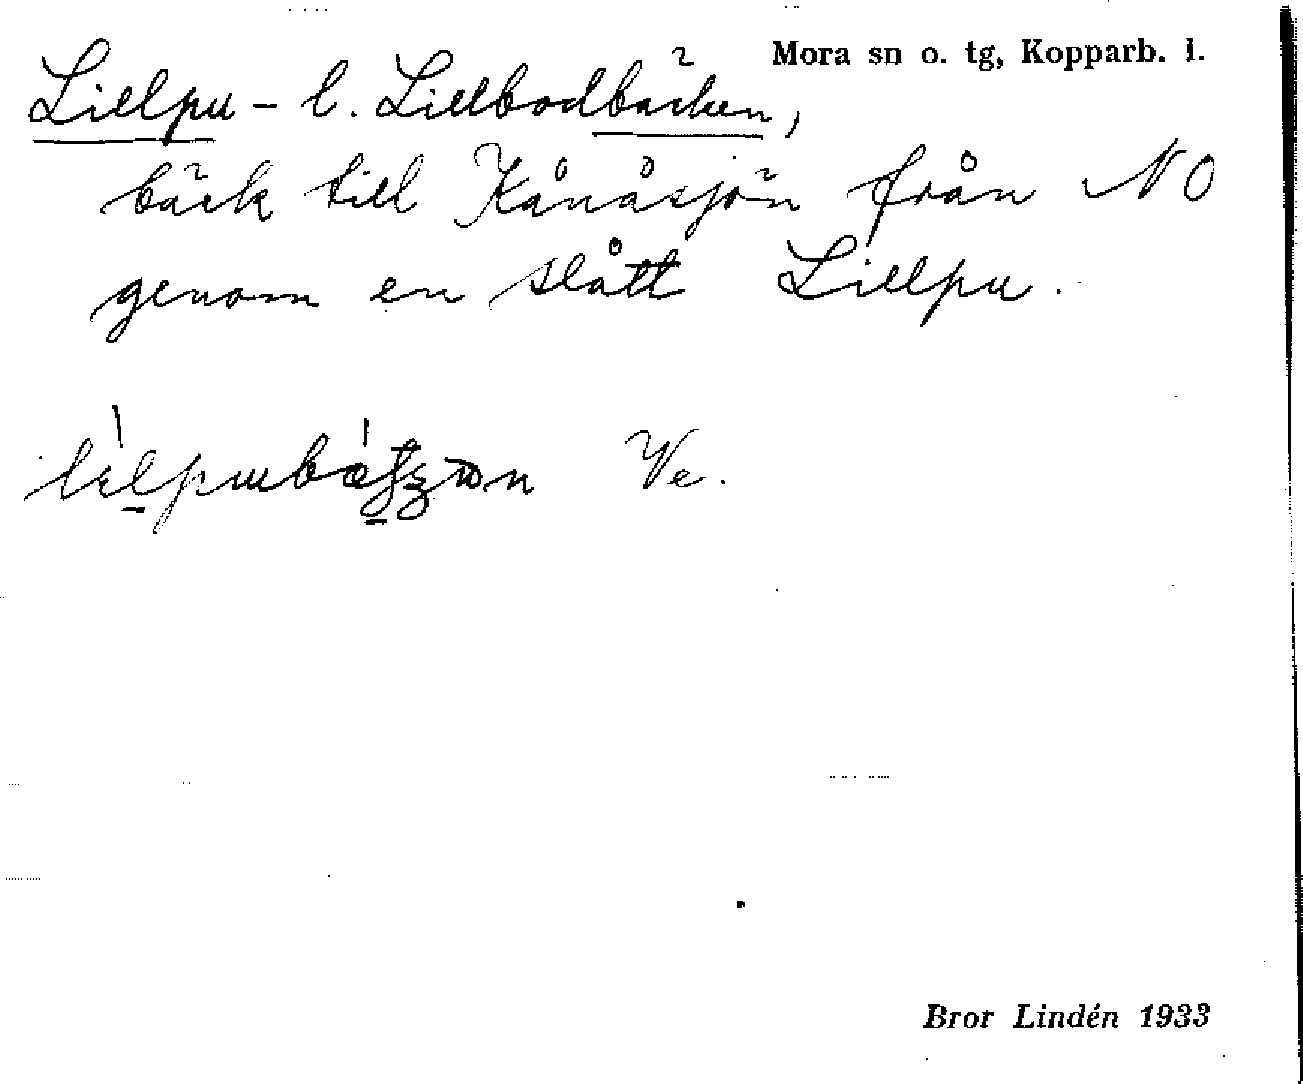 Mora sn o. tg, Kopparb. l.
Lillpu- l. Lillbodbäcken,
bäck till Kånåsjön från NO
genom en slått Lillpu.
Ve.
Bror Lindén 1933